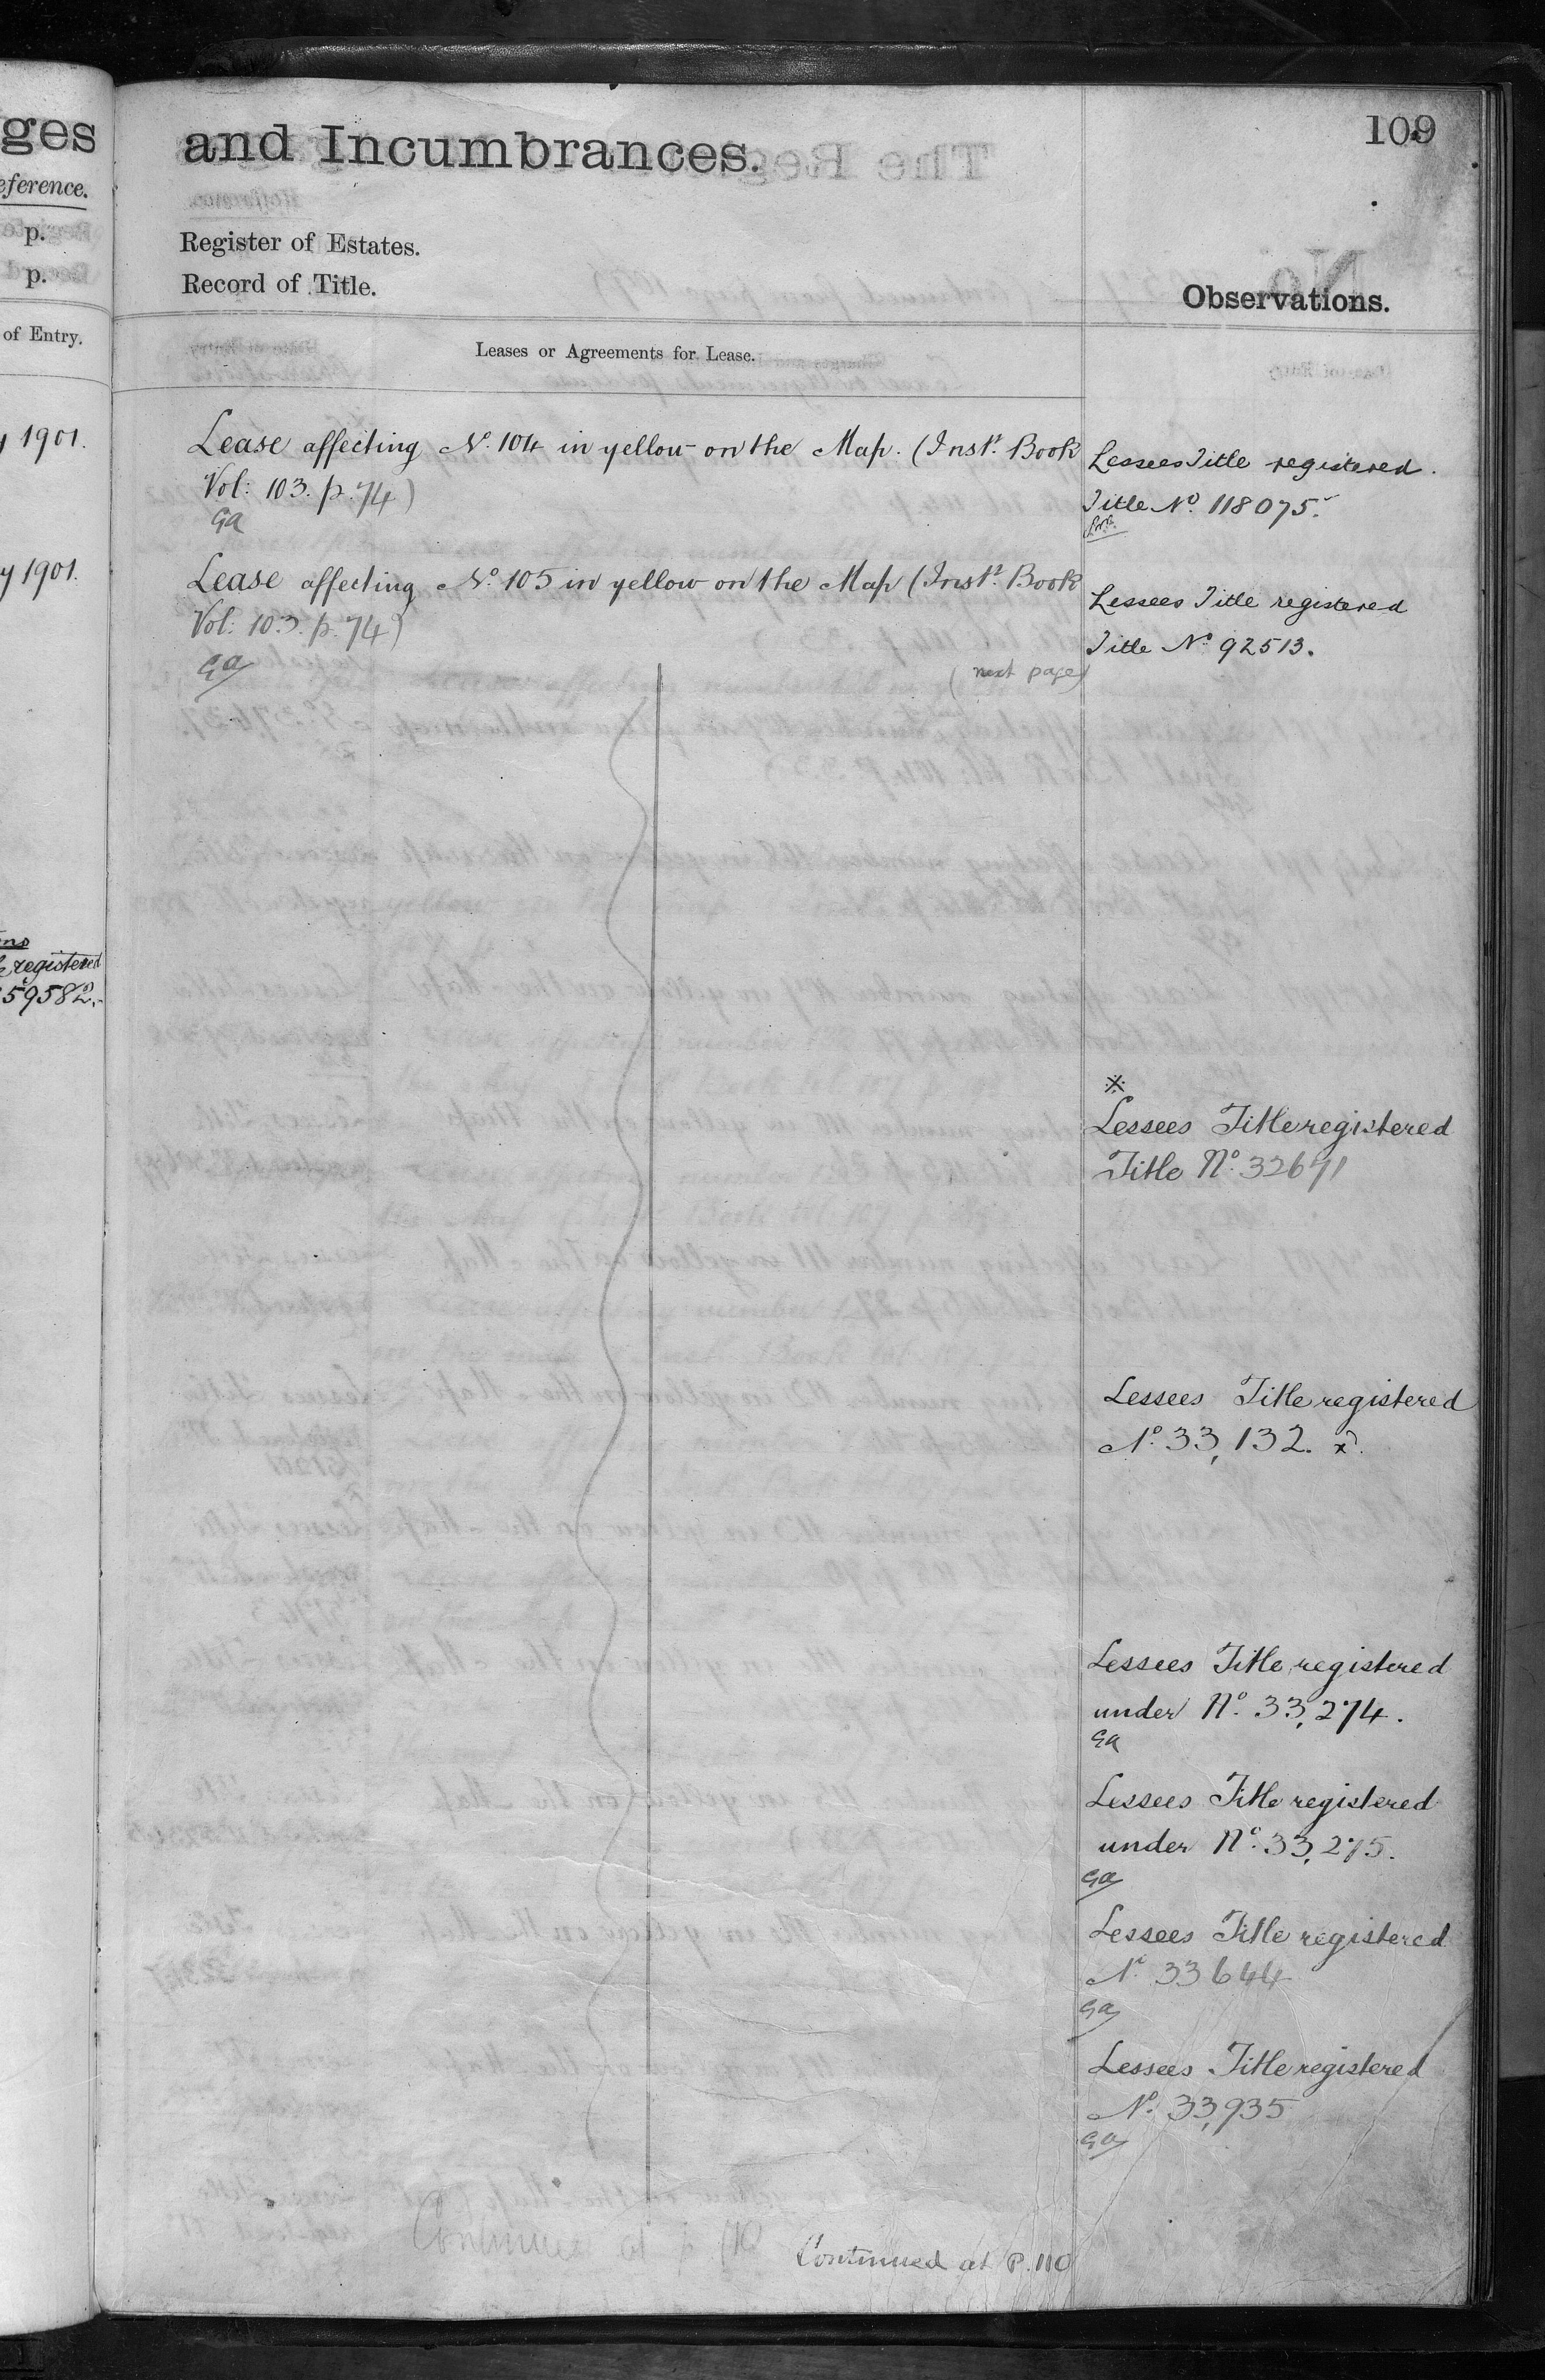 ges
eference.
p.
p.
of Entry.
1901.
y 1901.
registered
59582.
109
and Incumbrances.
Register of Estates.
Record of Title.
Observations.
Leases or Agreements for Lease.
Lease affecting No. 104 in yellow on the Map. (Inst. Book
Vol: 103. p. 74)
Ga
Lessees Title registered.
Title No. 118075.
Lease affecting No. 105 in yellow on the Map (Inst. Book
Vol: 103. p. 74)
Ga
(next page)
Lessees Title registered
Title No. 92513.
Lessees Title registered
Title No. 32671
Lessees Title registered
No. 33,132.
Lessees Title registered
under No. 33,274.
Ga
Lessees Title registered
under No. 33,275.
Ga
Lessees Title registered
No. 33644
Ga
Lessees Title registered
No. 33,935
Ga
Continued at p 110
Continued at P. 110